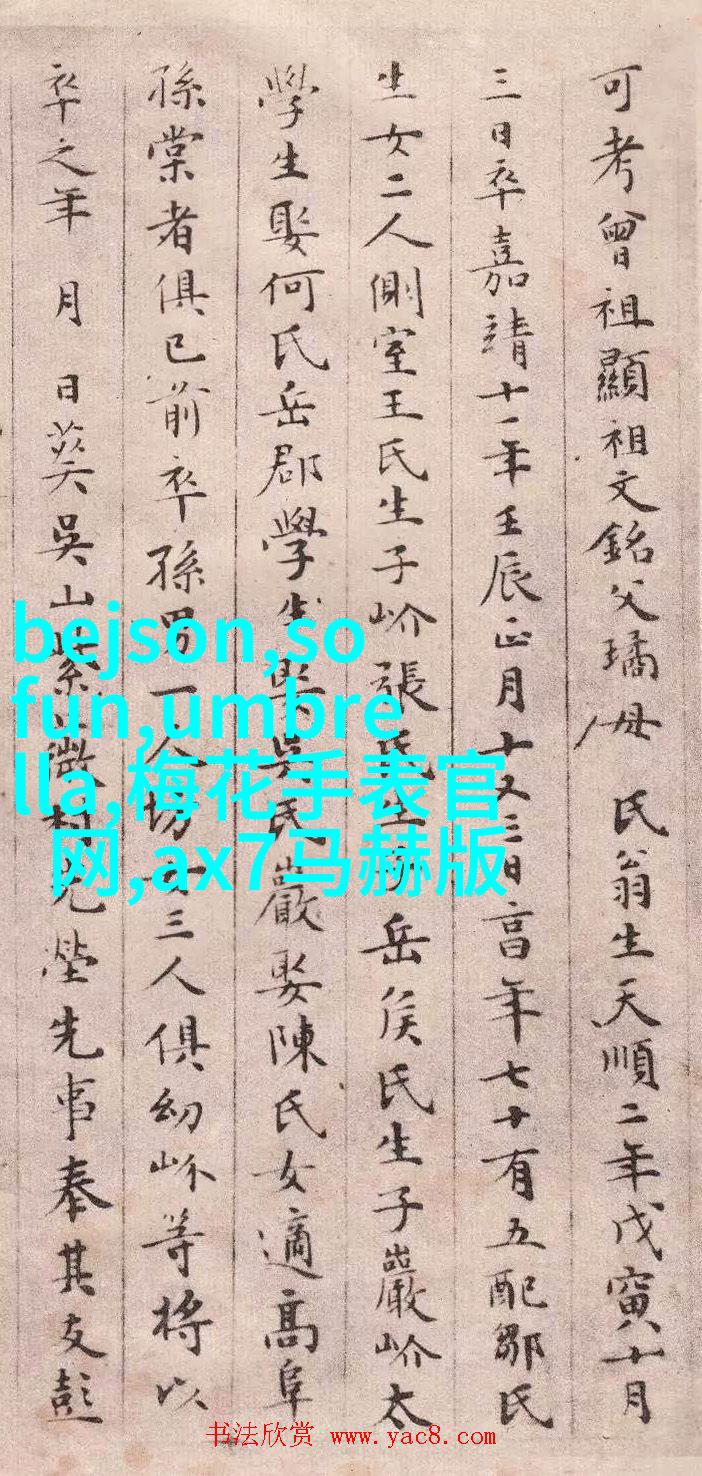 可考曾祖顯祖文銘父璚母 氏翁生天順二年戊寅十月
三日卒嘉靖十一年壬辰正月十又三日亯年七十有五配鄒氏
生女二人側室王氏生子岕張氏生 岳矦氏生子巖岕太
學生娶何氏岳郡學生娶吳氏巖娶陳氏女適髙阜
孫棠者俱已前卒孫男一人 女三人俱幼岕等將以
卒之年 月 日葬吳山 先塋先事奉其友彭
bejson,so
fun,umbre
lla,梅花手表官
网,ax7马赫版
书法欣赏 www.yac8.com